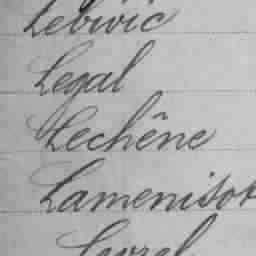 Lebivic
Legal
Lechêne
Lamenisot